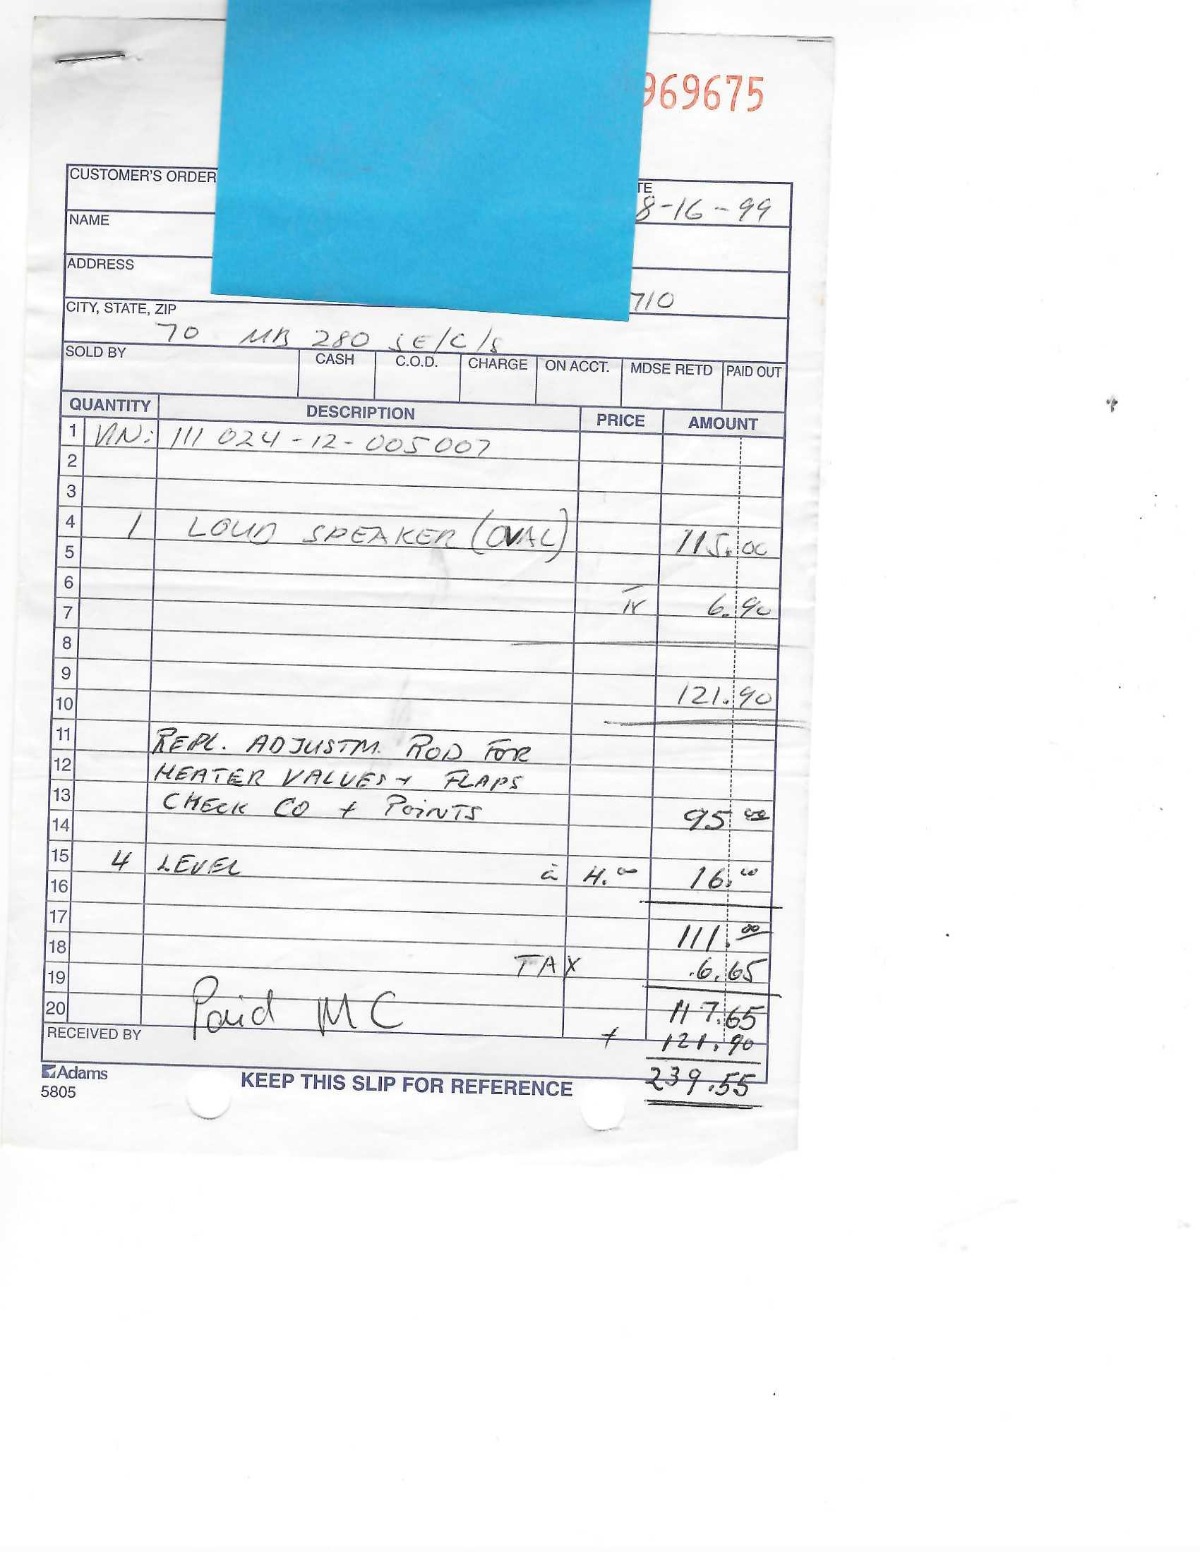 969675
CUSTOMER'S ORDER
TE
8-16-99
NAME
ADDRESS
710
CITY, STATE, ZIP
70 MB 280 SE/C/S
SOLD BY CASH C.O.D. CHARGE ON ACCT. MDSE RETD PAID OUT
QUANTITY DESCRIPTION PRICE AMOUNT
1 VIN: 111 024-12-005007
2
3
4 1 LOUD SPEAKER (OVAL) 115.00
5
6
7 6.90
8
9
10 121.90
11 REPL. ADJUSTM. ROD FOR
12 HEATER VALUES + FLAPS
13 CHECK CO + POINTS 95 00
14
15 4 LEVEL à 4.00 16.00
16
17 111.00
18 TAX 6.65
19
20 Paid MC 117.65
RECEIVED BY + 121.90
Adams
5805
KEEP THIS SLIP FOR REFERENCE 239.55